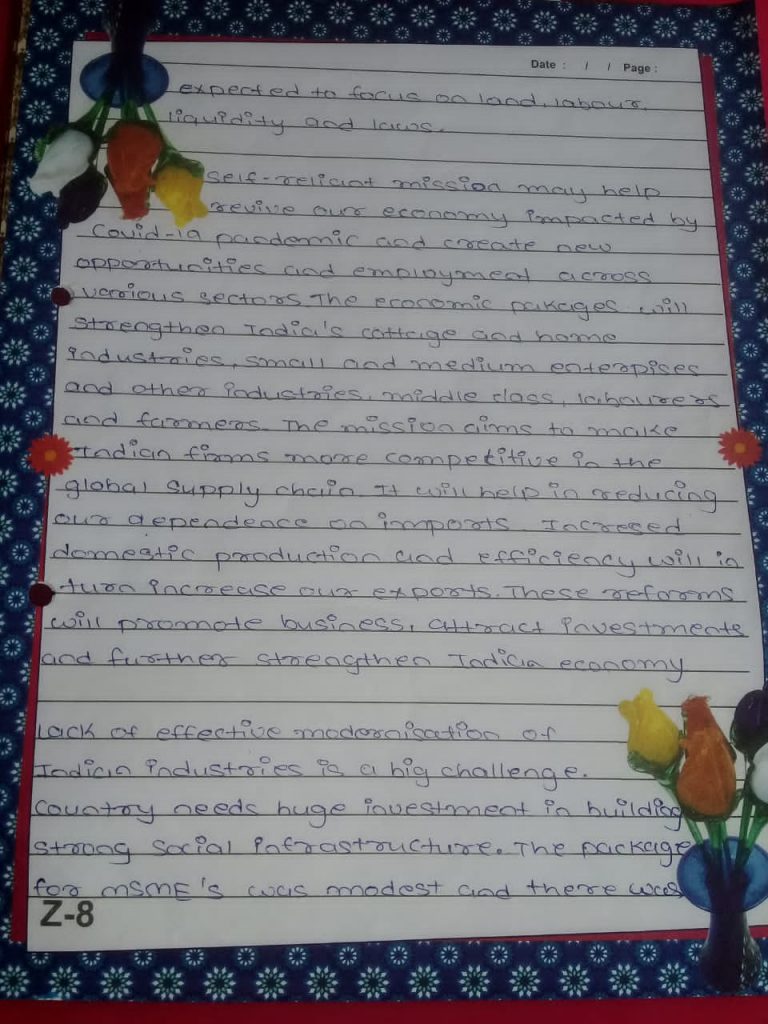 Date : / / Page :
expected to focus on land, labour,
liquidity and laws.
Self-reliant mission may help
revive our economy impacted by
Covid-19 pandemic and create new
opportunities and employment across
various sectors. The economic pakages will
strengthen India's cottage and home
industries, small and medium enterpises
and other industries, middle class, labourers
and farmers. The mission aims to make
Indian firms more competitive in the
global supply chain. It will help in reducing
our dependence on imports. Incresed
domestic production and efficiency will in
turn increase our exports. These reforms
will promote business, attract investments
and further strengthen Indian economy
Lack of effective modernisation of
Indian industries is a big challenge.
Country needs huge investment in building
strong social infrastructure. The package
for MSME's was modest and there was
Z-8